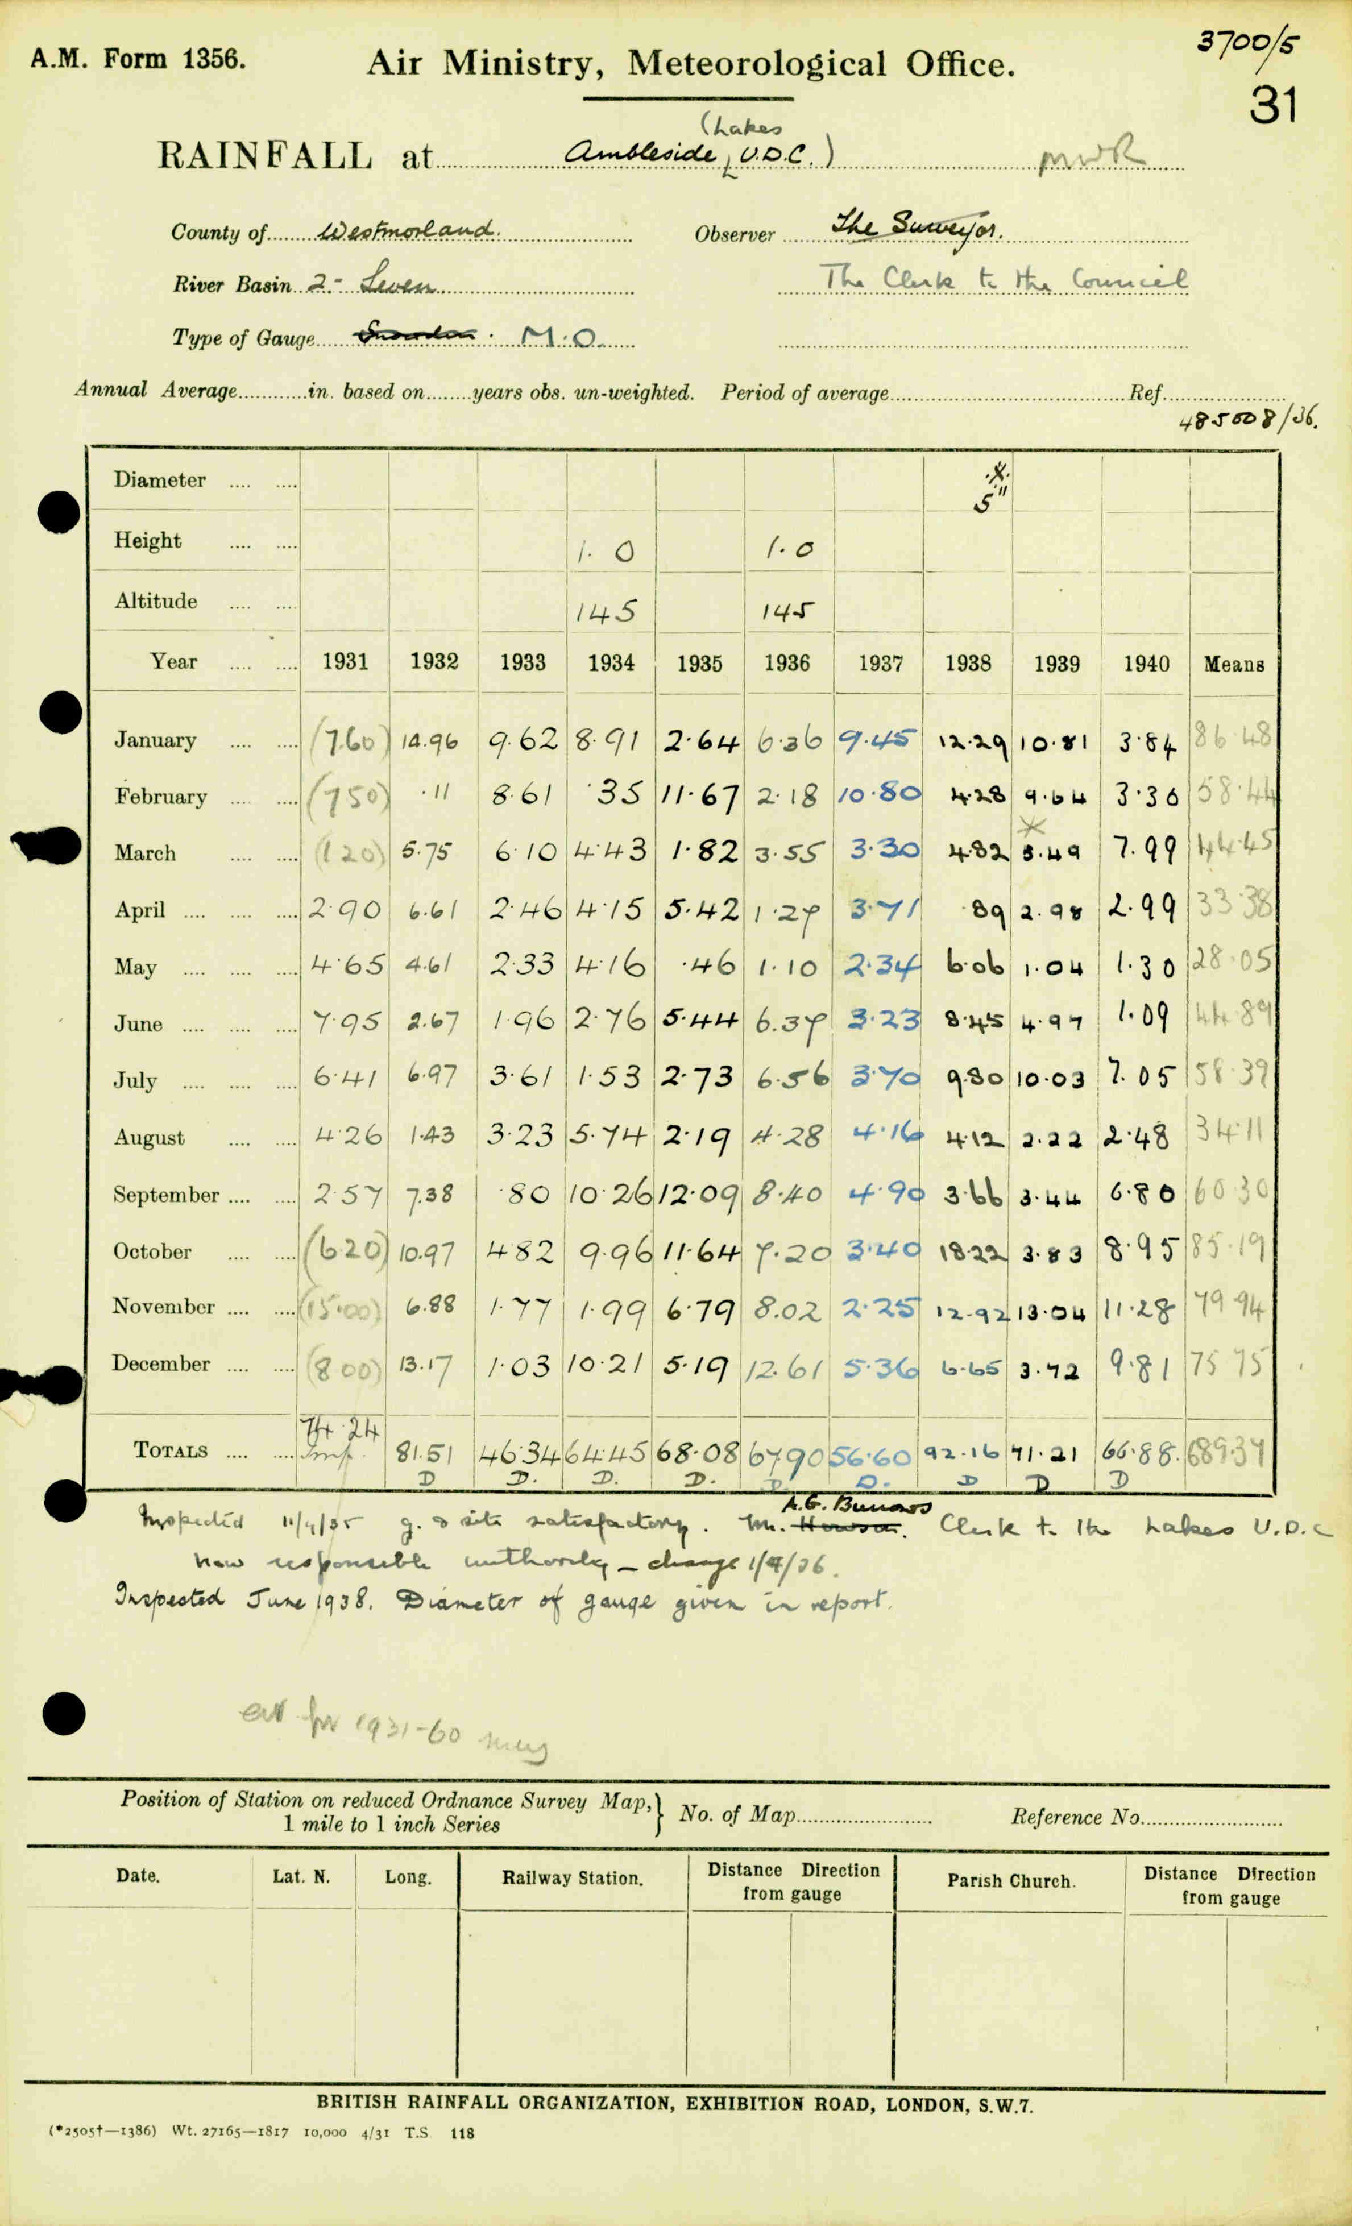 3700/5
A.M. Form 1356.
Air Ministry, Meteorological Office.
31
(Lakes
RAINFALL at Ambleside, U.D.C.) MWR
County of Westmorland. Observer The Surveyor.
River Basin 2 - Leven The Clerk to the Council
Type of Gauge Snowdon. M.O.
Annual Average in. based on years obs. un-weighted. Period of average Ref.
485008/36.
Diameter 5"
Height 1.0 1.0
Altitude 145 145
Year 1931 1932 1933 1934 1935 1936 1937 1938 1939 1940 Means
January (7.60) 14.96 9.62 8.91 2.64 6.36 9.45 12.29 10.81 3.84 86.48
February (7.50) .11 8.61 .35 11.67 2.18 10.80 4.28 9.64 3.30 58.44
March (1.20) 5.75 6.10 4.43 1.82 3.55 3.30 4.82 5.49 7.99 44.45
April 2.90 6.61 2.46 4.15 5.42 1.27 3.71 .89 2.98 2.99 33.38
May 4.65 4.61 2.33 4.16 .46 1.10 2.34 6.06 1.04 1.30 28.05
June 7.95 2.67 1.96 2.76 5.44 6.37 3.23 8.45 4.97 1.09 44.89
July 6.41 6.97 3.61 1.53 2.73 6.56 3.70 9.80 10.03 7.05 58.39
August 4.26 1.43 3.23 5.74 2.19 4.28 4.16 4.12 2.22 2.48 34.11
September 2.57 7.38 .80 10.26 12.09 8.40 4.90 3.66 3.44 6.80 60.30
October (6.20) 10.97 4.82 9.96 11.64 7.20 3.40 18.22 3.83 8.95 85.19
November (15.00) 6.88 1.77 1.99 6.79 8.02 2.25 12.92 13.04 11.28 79.94
December (8.00) 13.17 1.03 10.21 5.19 12.61 5.36 6.65 3.72 9.81 75.75
74.24
TOTALS Imp. 81.51 46.34 64.45 68.08 67.90 56.60 92.16 71.21 66.88 689.37
D D. D. D. D D. D D D
A.G. Burrows
Inspected 11/4/35 g. & site satisfactory. Mr. Howson. Clerk to the Lakes U.D.C
now responsible authority - change 1/4/36.
Inspected June 1938. Diameter of gauge given in report.
for 1931-60
Position of Station on reduced Ordnance Survey Map, 1 mile to 1 inch Series } No. of Map Reference No.
Date. Lat. N. Long. Railway Station. Distance Direction from gauge Parish Church. Distance Direction from gauge
BRITISH RAINFALL ORGANIZATION, EXHIBITION ROAD, LONDON, S.W.7.
(*2505†—1386) Wt. 27165—1817 10,000 4/31 T.S. 118